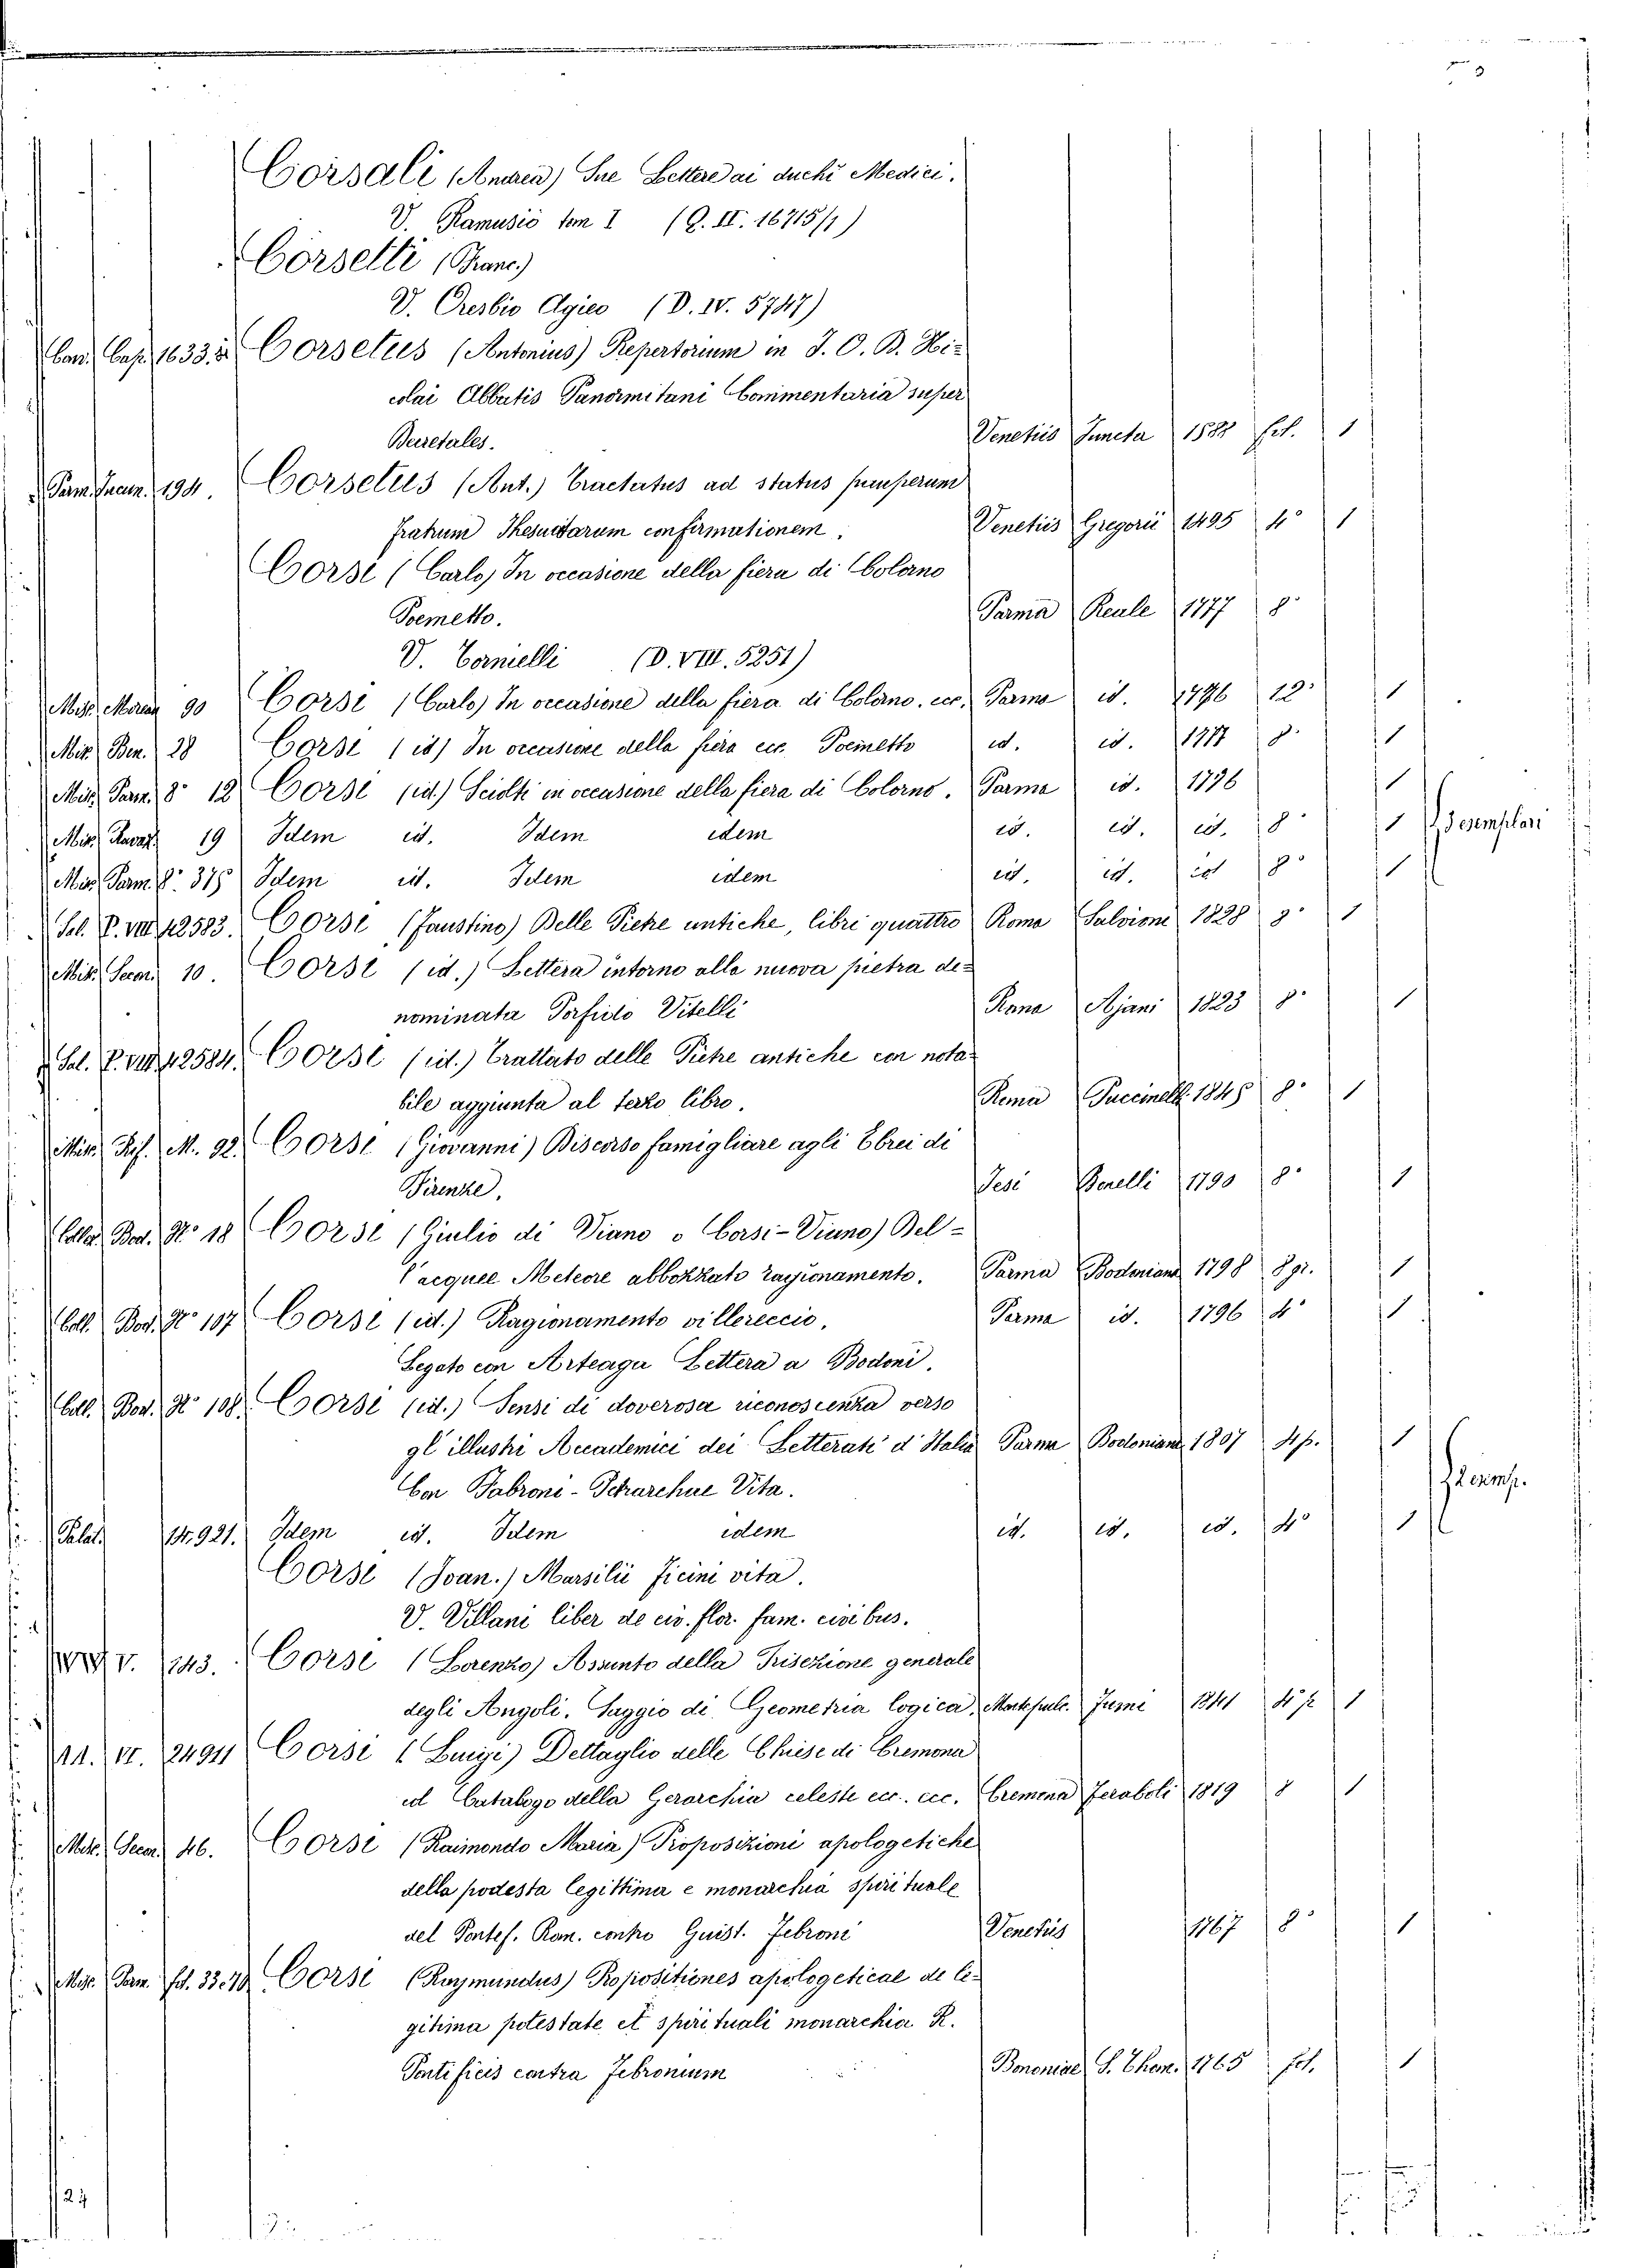 Corsali (Andrea) Sue Lettere ai duchi Medici.
V. Ramusio tom I (Q. II. 16715/1)
Corsetti (Franc.)
V. Oresbio Agieo (D. IV. 5747)
Cap. 1633. Corsetus (Antonius) Repertorium in J. O. B. Ni=
colai Abbatis Panormitani Commentaria super
Decretales. Venetiis Juncta 1588 fol. 1
Parm. 194. Corsetus (Ant.) Tractatus ad status pauperum
fratrum Thesuatarum confirmationem. Venetiis Gregorii 1495 4° 1
Corsi (Carlo) In occasione della fiera di Colorno
Poemetto. Parma Reale 1777 8°
V. Cornielli (D. VIII. 5251)
Misc. 90 Corsi (Carlo) In occasione della fiera di Colorno. ecc. Parma id. 1776 12° 1
Mis. Ben. 28 Corsi (id) In occasione della fiera ecc. Poemetto id. id. 1777 8° 1
Mis. Parm. 8° 12 Corsi (id.) Sciolti in occasione della fiera di Colorno. Parma id. 1776 1
Mis. 19 Idem id. Idem idem id. id. id. 8° 1 3 esemplari
Mis. Parm. 8° 375 Idem id. Idem idem id. id. id 8° 1
Sal. P. VIII. 42583. Corsi (Faustino) Delle Pietre antiche, libri quattro Roma Salvioni 1828 8° 1
Mis. 10. Corsi (id.) Lettera intorno alla nuova pietra de=
nominata Porfido Vitelli Roma Ajani 1823 8° 1
Sal. P. VIII. 42584. Corsi (id.) Trattato delle Pietre antiche con nota=
bile aggiunta al terzo libro. Roma Puccinelli 1845 8° 1
Mis. M. 92. Corsi (Giovanni) Discorso famigliare agli Ebrei di
Firenze. Jesi Bonelli 1790 8° 1
Bod. N° 18 Corsi (Giulio di Viano o Corsi-Viano) Del=
l'acquee Meteore abbozzato ragionamento. Parma Bodoniana 1798 8gr. 1
Coll. Bod. N° 107 Corsi (id.) Ragionamento villereccio. Parma id. 1796 4° 1
Legato con Arteaga Lettera a Bodoni.
Coll. Bod. N° 108. Corsi (id.) Sensi di doverosa riconoscenza verso
gl' illustri Accademici dei Letterati d'Italia Parma Bodoniana 1807 4p. 1
Con Fabroni - Scharchue Vita. 2 esemp.
Palat. 14.921. Idem id. Idem idem id. id. id. 4° 1
Corsi (Joan.) Marsilii Ficini vita.
V. Villani liber de civ. flor. fam. civibus.
V. 143. Corsi (Lorenzo) Assunto della Trisezione generale
degli Angoli. Saggio di Geometria logica. Jurni 1841 4° p. 1
VI. 24911 Corsi (Luigi) Dettaglio delle Chiese di Cremona
ed Catalogo della Gerarchia celeste ecc. ecc. Cremona Feraboli 1819 8 1
46. Corsi (Raimondo Maria) Proposizioni apologetiche
della podesta legittima e monarchia spirituale
del Pontef. Rom. contro Guist. Febroni Venetiis 1767 8° 1
Misc. Parm. fol. 33.70 Corsi (Raymundus) Propositiones apologeticae de le=
gitima potestate et spirituali monarchia R.
Pontificis contra Febronium Bononiae S. Thom. 1765 fol. 1